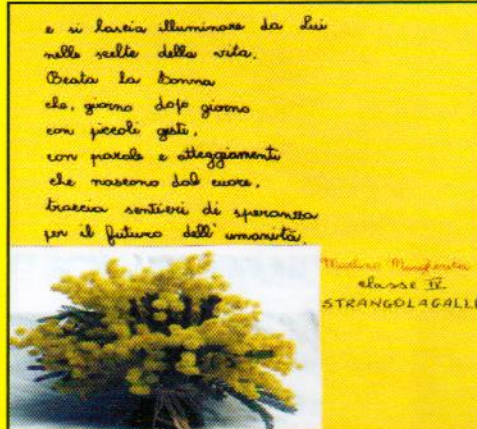 e si lascia illuminare da Lui
nelle scelte della vita.
Beata la Donna
che, giorno dopo giorno
con piccoli gesti,
con parole e atteggiamenti
che nascono dal cuore,
traccia sentieri di speranza
per il futuro dell'umanità.
Margherita
classe IV
STRANGOLAGALLI